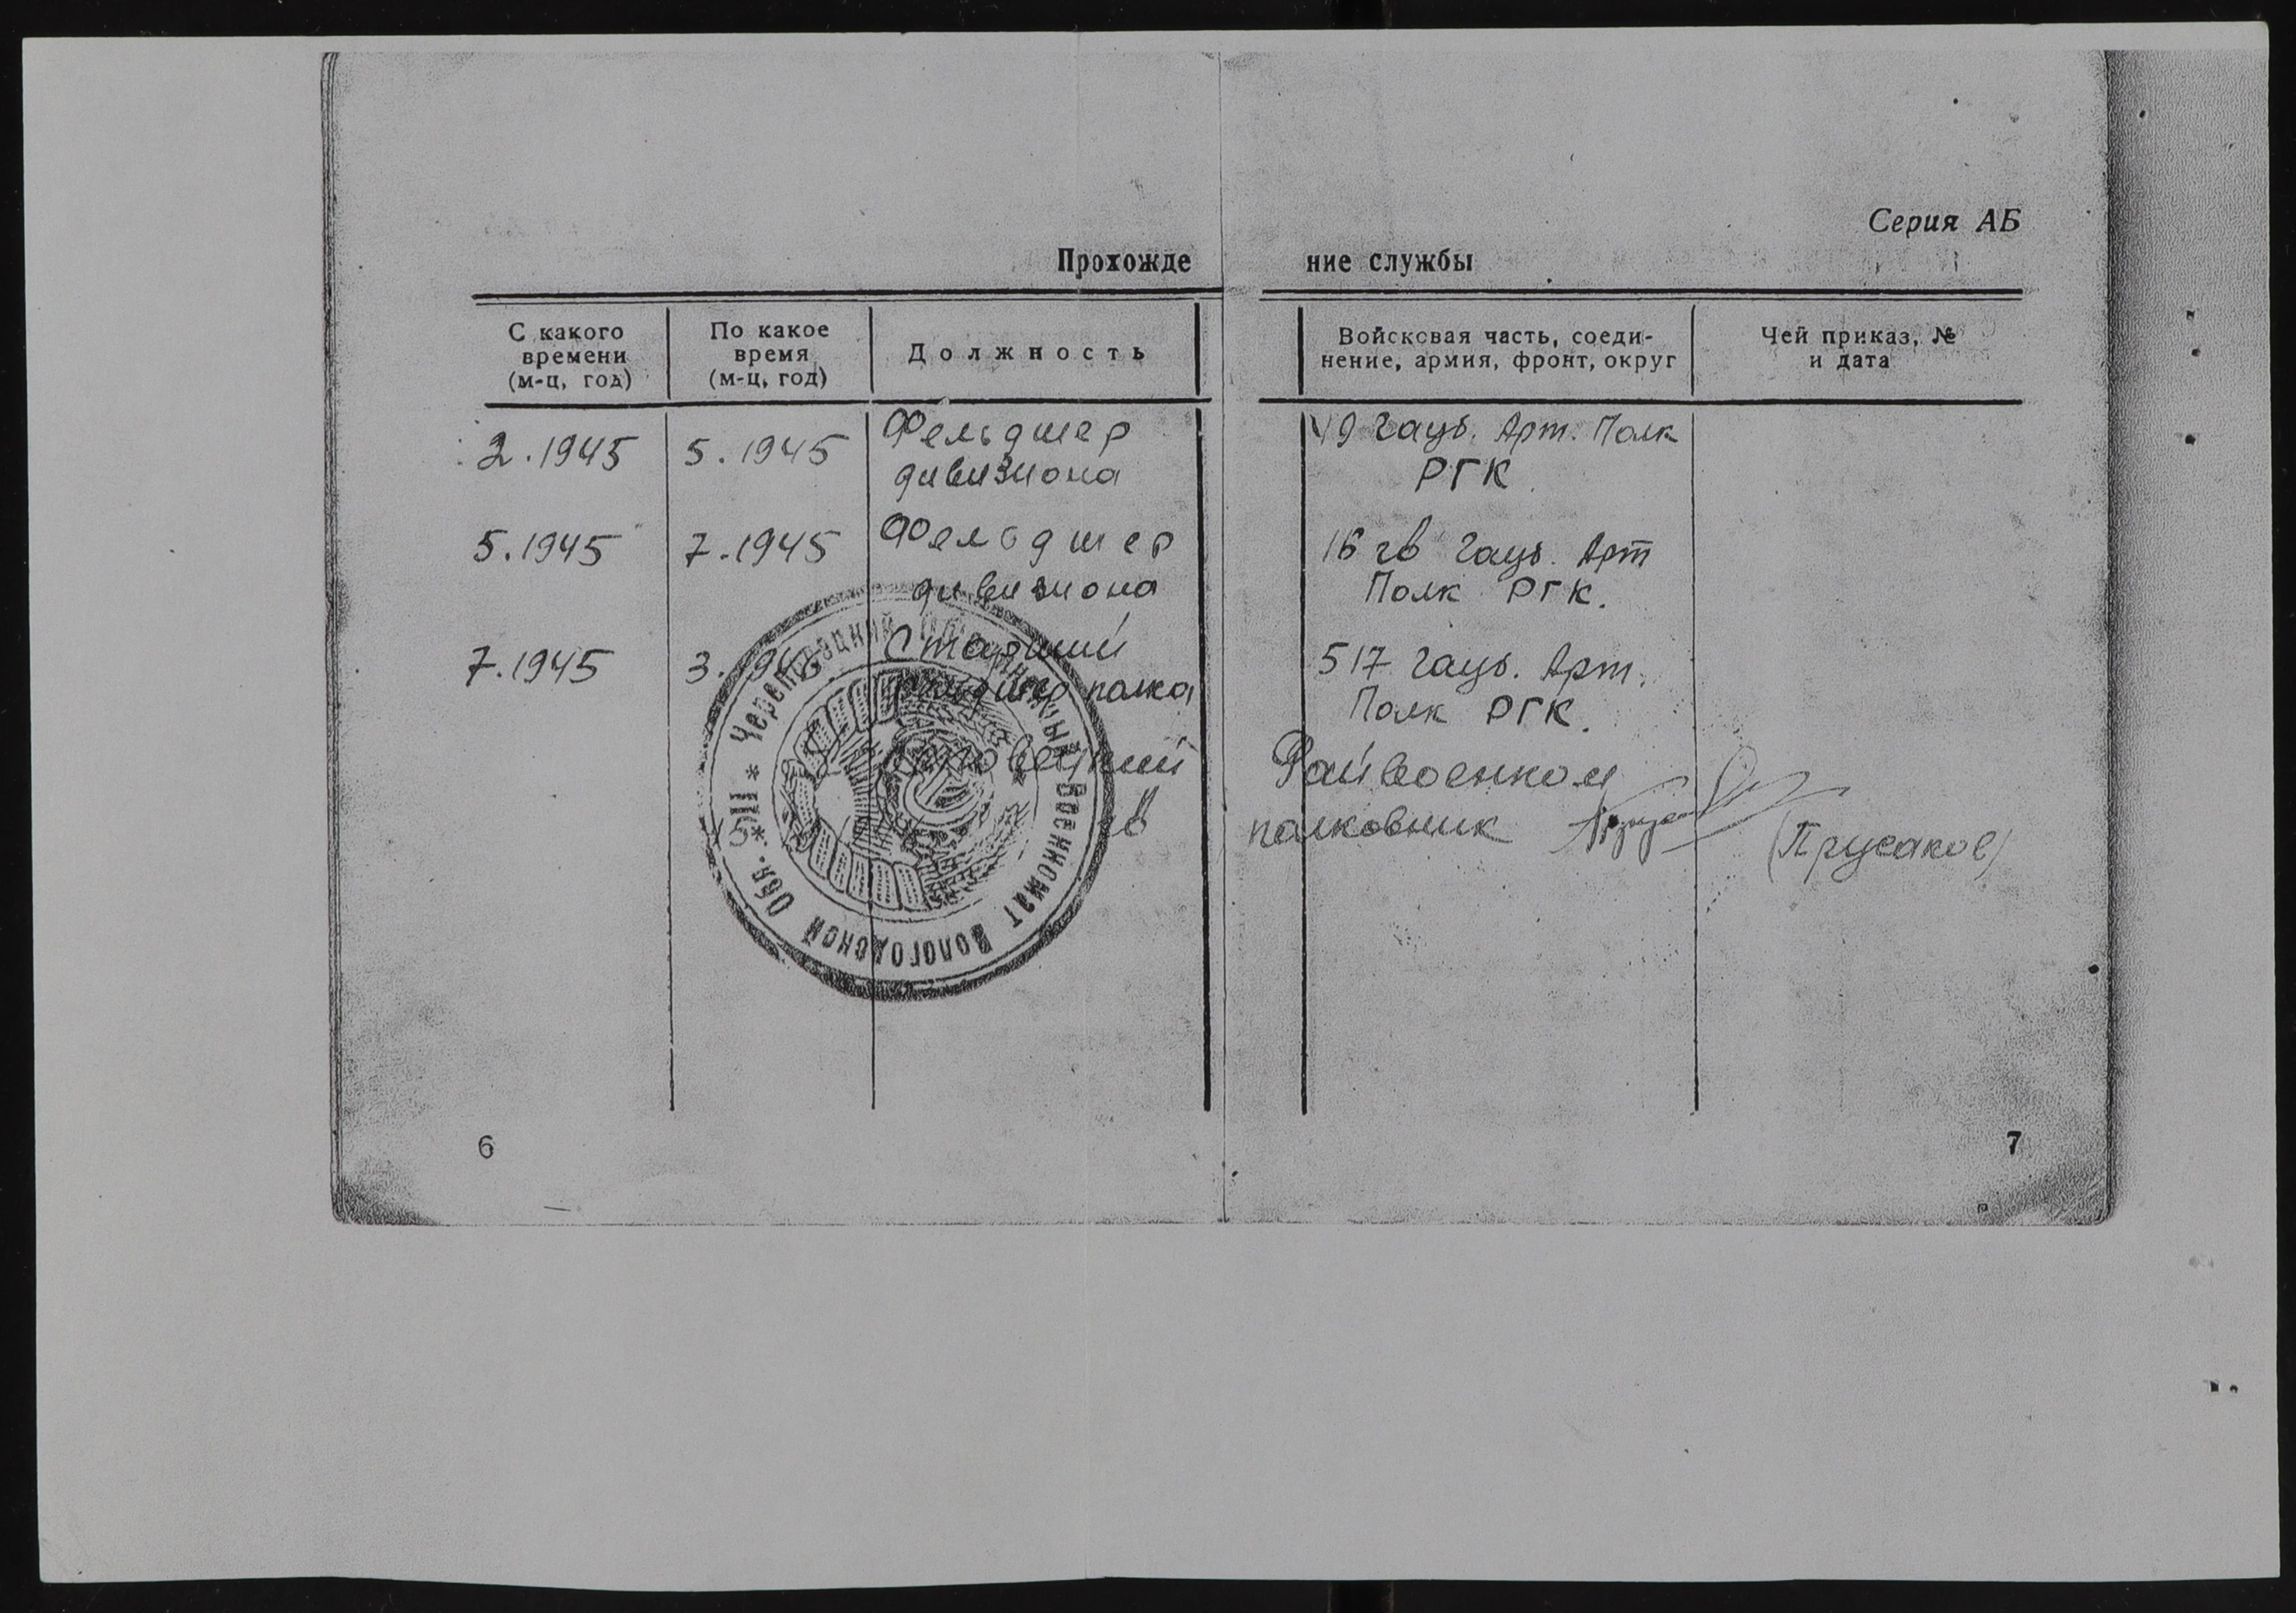 Серия АБ
Прохожде ние службы
С какого времени (м-ц, год)
По какое время (м-ц, год)
Должность
Войсковая часть, соеди-
нение, армия, фронт, округ
Чей приказ, №
и дата
2.1945 5.1945 Фельдшер
дивизиона
49 Гауб. Арт. Полк
РГК
5.1945 7.1945 Фельдшер
дивизиона
16 гв Гауб. Арт
Полк РГК.
7.1945 3.1946 Старший
фельдшер полка
517 Гауб. Арт.
Полк РГК.
Череповецкий
Райвоенком
полковник
(Прусаков)
Череповецкий Военкомат Вологодской Обл.
6
7